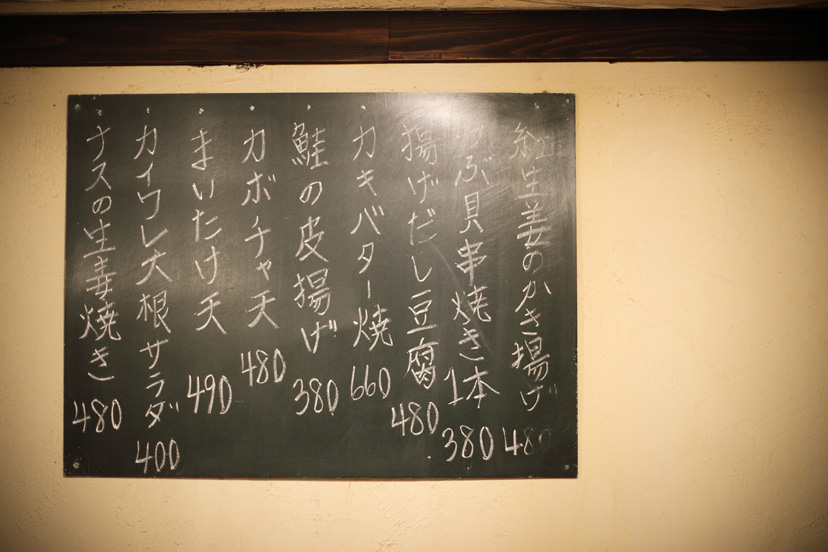 紅生姜のかき揚げ 480
つぶ貝串焼き1本 380
揚げだし豆腐 480
・カキバター焼 660
・鮭の皮揚げ 380
・カボチャ天 480
・まいたけ天 490
・カイワレ大根サラダ 400
・ナスの生姜焼き 480